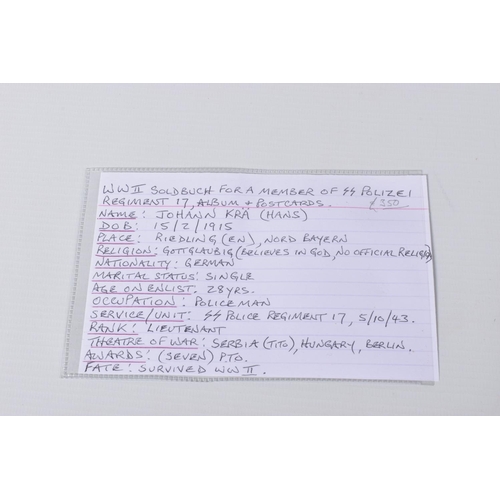 WWII SOLDBUCH FOR A MEMBER OF SS POLIZEI
REGIMENT 17, ALBUM + POSTCARDS. £350
NAME: JOHANN KRÄ (HANS)
D.O.B: 15/2/1915
PLACE: RIEDLING (EN), NORD BAYERN
RELIGION: GOTTGLAUBIG (BELIEVES IN GOD, NO OFFICIAL RELIGION)
NATIONALITY: GERMAN
MARITAL STATUS: SINGLE
AGE ON ENLIST. 28YRS.
OCCUPATION: POLICEMAN
SERVICE/UNIT: SS POLICE REGIMENT 17, 5/10/43.
RANK: LIEUTENANT
THEATRE OF WAR: SERBIA (TITO), HUNGARY, BERLIN.
AWARDS: (SEVEN) P.T.O.
FATE: SURVIVED WWII.